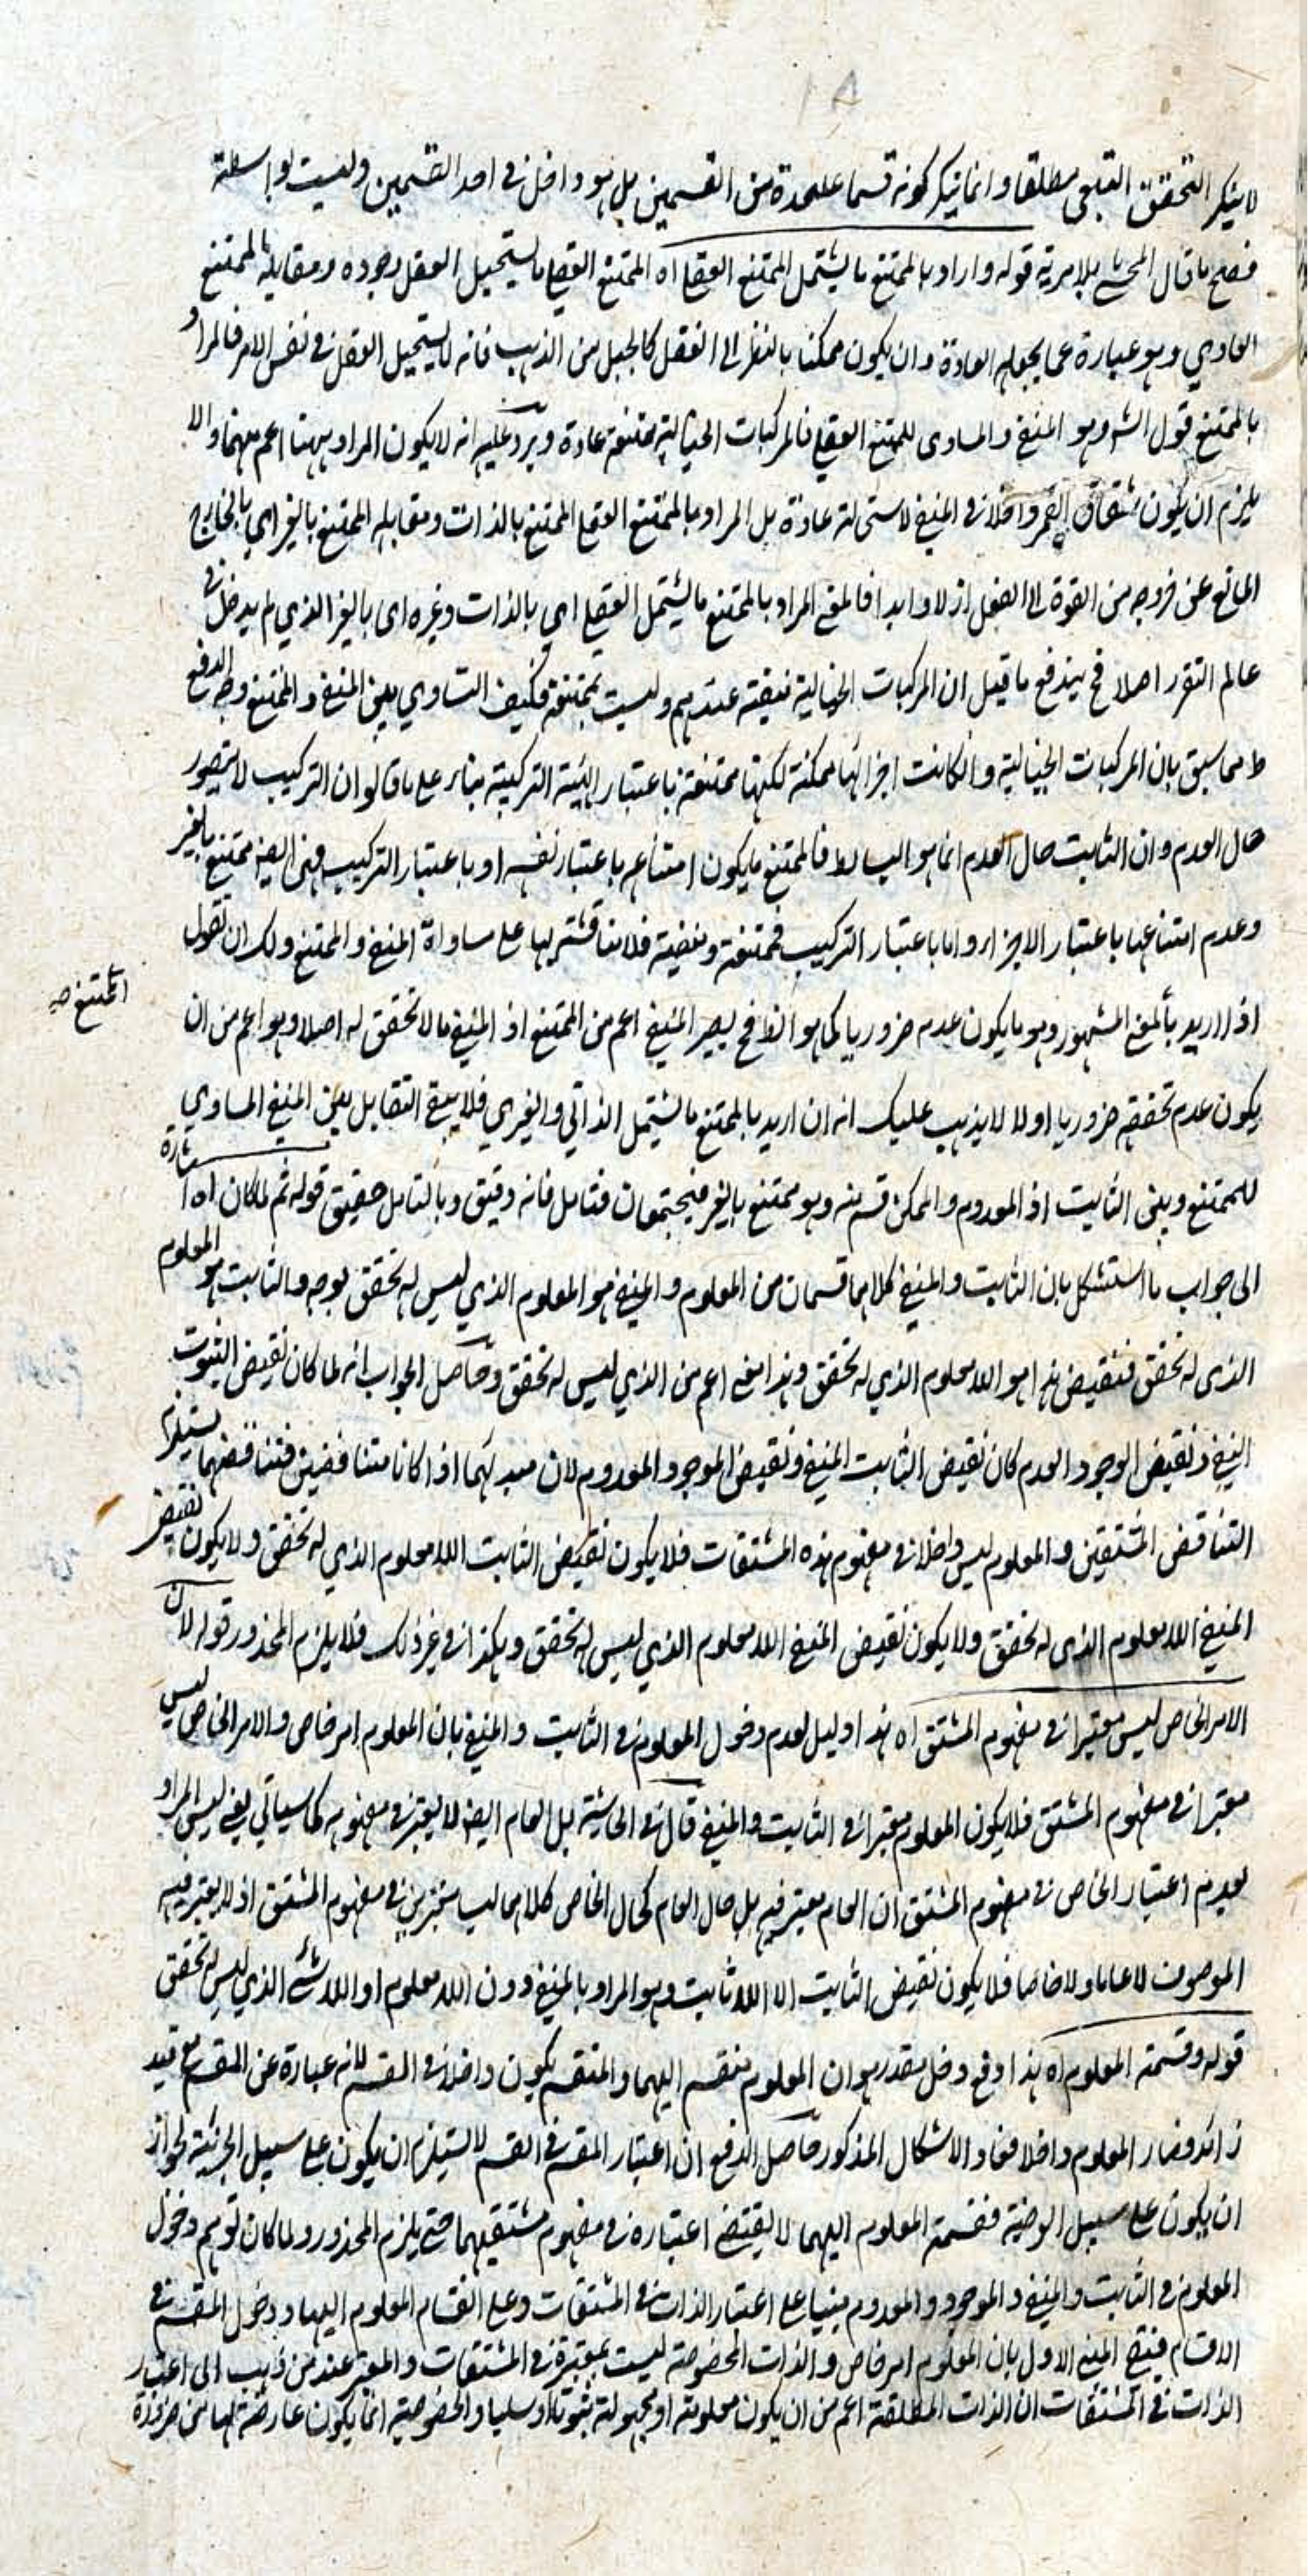 لا ينكر التحقق التبعي مطلقا وانما ينكر كونه قسما علحدة من القسمين بل هو داخل في احد القسمين وليست لواسطة
فصح ما قال المحشي بلا مرية قوله واراد بالممتنع ما يشتمل الممتنع العقلي اه الممتنع العقلي ما يستحيل العقل وجوده ومقابله الممتنع
العادي وهو عبارة عما يحيله العادة وان يكون ممكنا بالنظر الى العقل كالجبل من الذهب فانه لا يستحيل العقل في نفس الامر فالمراد
بالممتنع قول الشه وهو المنفي والمساوى للممتنع العقلي فالمركبات الخيالية ممتنعة عادة ويرد عليه انه لا يكون المراد ههنا اعم منهما والا
يلزم ان يكون شقاق القمر داخلا في المنفي لاستحالته عادة بل المراد بالممتنع العقلي الممتنع بالذات ومقابله الممتنع بالغير اي بالخارج
المانع عن خروجه من القوة الى الفعل ازلا وابدا فالمعنى المراد بالممتنع ما يشتمل العقلي اي بالذات وغيره اى بالغير الذي لم يدخل في
عالم التقرر اصلا فح يندفع ما قيل ان المركبات الخيالية منفية عندهم وليست بممتنعة فكيف التساوي بين المنفي والممتنع وجه الدفع
ظ مما سبق بان المركبات الخيالية وان كانت اجزائها ممكنة لكنها ممتنعة باعتبار الهيئة التركيبية بناء على ما قالوا ان التركيب لا يتصور
حال العدم وان الثابت حال العدم انما هو البسائط فالممتنع ما يكون امتناعه باعتبار نفسه او باعتبار التركيب فهي ايضا ممتنع بالغير
وعدم امتناعها باعتبار الاجزاء واما باعتبار التركيب فممتنعة ومنفية فلا مناقشة بها على مساواة المنفي والممتنع ولك ان تقول
الممتنع صح
اذا اريد بالمعنى المشهور وهو ما يكون عدمه ضروريا كما هو الظ فح يصير المنفي اعم من الممتنع اذ المنفي ما لا تحقق له اصلا وهو اعم من ان
يكون عدم تحققه ضروريا او لا لا يذهب عليك انه ان اريد بالممتنع ما يشتمل الذاتي والغيري فلا يبقى التقابل بين المنفي المساوي
للممتنع وبين الثابت اذ المعدوم الممكن قسم منه وهو ممتنع بالغير فيجتمعان فتامل فانه دقيق وبالتامل حقيق قوله ثم لما كان اه اشارة
الى جواب ما استشكل بان الثابت والمنفي كلاهما قسمان من المعلوم والمنفي هو المعلوم الذي ليس له تحقق بوجه والثابت هو المعلوم
الذى له تحقق فنقيض هذا هو اللامعلوم الذي له تحقق وهذا معنى اعم من الذي ليس له تحقق وحاصل الجواب انه لما كان نقيض الثبوت
النفي ونقيض الوجود العدم كان نقيض الثابت المنفي ونقيض الموجود المعدوم لان مبدءهما اذا كانا متناقضين فتناقضهما يستلزم
التناقض المشتقين والمعلوم ليس داخلا في مفهوم هذه المشتقات فلا يكون نقيض الثابت اللامعلوم الذي له تحقق ولا يكون نقيض
المنفي اللامعلوم الذى له تحقق ولا يكون نقيض المنفي اللامعلوم الذي ليس له تحقق وهكذا في غير ذلك فلا يلزم المحذور قوله لان
الامر الخاص ليس معتبرا في مفهوم المشتق اه هذا دليل لعدم دخول المعلوم في الثابت والمنفي بان المعلوم امر خاص والامر الخاص ليس
معتبرا في مفهوم المشتق فلا يكون المعلوم معتبرا في الثابت والمنفي قال في الحاشية بل العام ايضا لا يعتبر في مفهومه كما سياتي يعني ليس المراد
بعدم اعتبار الخاص في مفهوم المشتق ان العام معتبر فيه بل حال العام كحال الخاص كلاهما ليسا معتبرين في مفهوم المشتق اذ لا يعتبر فيه
الموصوف لا عاما ولا خاصا فلا يكون نقيض الثابت الا اللاثابت وهو المراد بالمنفي دون اللامعلوم او اللاشئ الذي ليس له تحقق
قوله وقسمة المعلوم اه هذا دفع دخل مقدر هو ان المعلوم منقسم اليهما والمنقسم يكون داخلا في القسم لانه عبارة عن المقسم مع قيد
زائد فصار المعلوم داخلا فعاد الاشكال المذكور حاصل الدفع ان اعتبار المقسم في القسم لا يستلزم ان يكون على سبيل الجزئية لجواز
ان يكون على سبيل العرضية فقسمة المعلوم اليهما لا يقتضي اعتباره في مفهوم مشتقيهما حتى يلزم المحذور ولما كان توهم دخول
المعلوم في الثابت والمنفي والموجود والمعدوم مبنيا على اعتبار الذات في المشتقات وعلى انقسام المعلوم اليهما ودخول المقسم في
الاقسام فيتضح المنع الاول بان المعلوم امر خاص والذات المخصوصة ليست بمعتبرة في المشتقات والمعتبر عند من ذهب الى اعتبار
الذات في المشتقات ان الذات المطلقة اعم من ان يكون معلومة او مجهولة ثبوتا او سلبا والخصوصية انما يكون عارضة لها من ضرورة